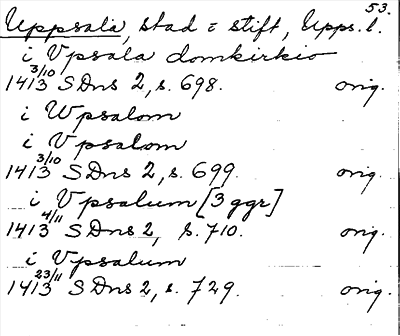 53.
Uppsala, stad = stift, Upps. l.
i Vpsala domkirkio
1413 3/10 SDns 2, s. 698. orig.
i Wpsalom
i Vpsalom
1413 3/10 SDns 2, s. 699. orig.
i Vpsalum [3 ggr]
1413 4/11 SDns 2, s. 710. orig.
i Vpsalum
1413 23/11 SDns 2, s. 729. orig.